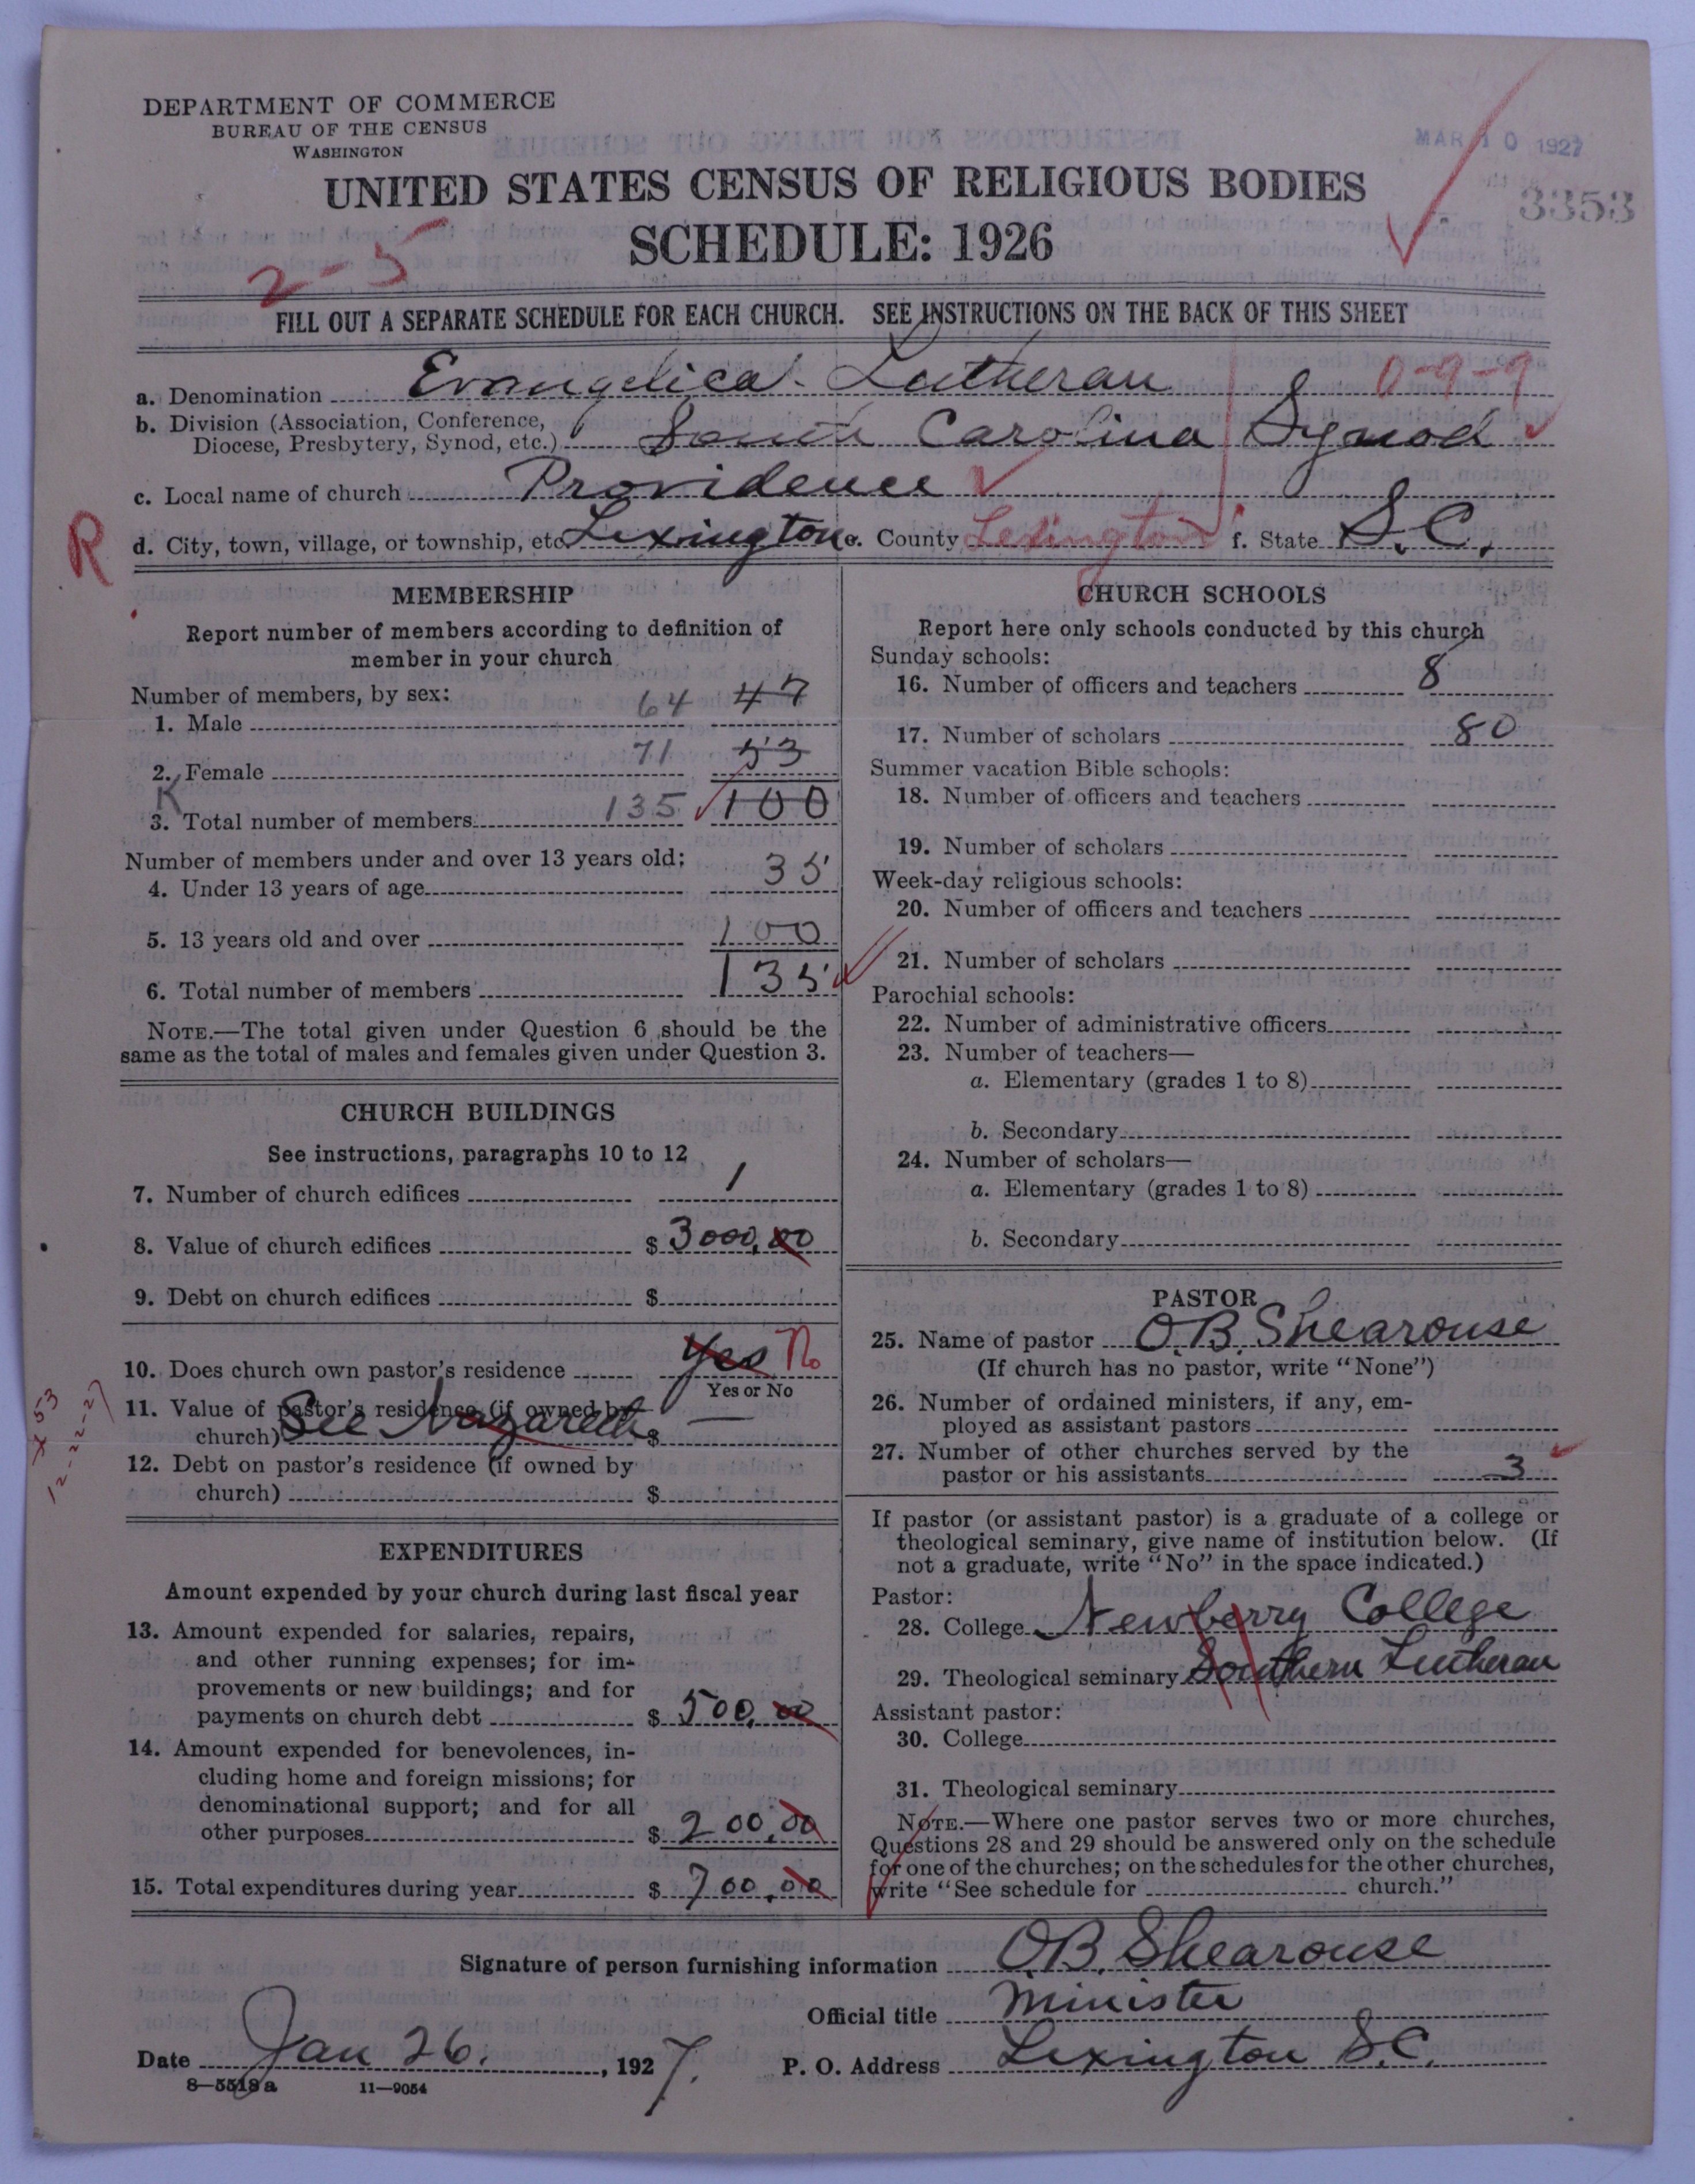 DEPARTMENT OF COMMERCE
BUREAU OF THE CENSUS
WASHINGTON
MAR 10 1927
3353
UNITED STATES CENSUS OF RELIGIOUS BODIES
SCHEDULE: 1926
2-5
FILL OUT A SEPARATE SCHEDULE FOR EACH CHURCH. SEE INSTRUCTIONS ON THE BACK OF THIS SHEET
0-9-9
a. Denomination Evangelical Lutheran
b. Division (Association, Conference,
Diocese, Presbytery, Synod, etc.) South Carolina Synod
c. Local name of church Providence
R
d. City, town, village, or township, etc. Lexington e. County Lexington f. State S.C.
MEMBERSHIP
Report number of members according to definition of
member in your church
Number of members, by sex:
1. Male 64 47
2. Female 71 53
K
3. Total number of members 135 100
Number of members under and over 13 years old:
4. Under 13 years of age 35
5. 13 years old and over 100
6. Total number of members 135
NOTE.—The total given under Question 6 should be the
same as the total of males and females given under Question 3.
CHURCH BUILDINGS
See instructions, paragraphs 10 to 12
7. Number of church edifices 1
8. Value of church edifices $ 3000.00
9. Debt on church edifices $
10. Does church own pastor's residence Yes No
Yes or No
11. Value of pastor's residence (if owned by
church) See Nazareth $
x 53
12-22-27
12. Debt on pastor's residence (if owned by
church) $
EXPENDITURES
Amount expended by your church during last fiscal year
13. Amount expended for salaries, repairs,
and other running expenses; for im-
provements or new buildings; and for
payments on church debt $ 500.00
14. Amount expended for benevolences, in-
cluding home and foreign missions; for
denominational support; and for all
other purposes $ 200.00
15. Total expenditures during year $ 700.00
CHURCH SCHOOLS
Report here only schools conducted by this church
Sunday schools:
16. Number of officers and teachers 8
17. Number of scholars 80
Summer vacation Bible schools:
18. Number of officers and teachers
19. Number of scholars
Week-day religious schools:
20. Number of officers and teachers
21. Number of scholars
Parochial schools:
22. Number of administrative officers
23. Number of teachers—
a. Elementary (grades 1 to 8)
b. Secondary
24. Number of scholars—
a. Elementary (grades 1 to 8)
b. Secondary
PASTOR
25. Name of pastor O.B. Shearouse
(If church has no pastor, write "None")
26. Number of ordained ministers, if any, em-
ployed as assistant pastors
27. Number of other churches served by the
pastor or his assistants 3
If pastor (or assistant pastor) is a graduate of a college or
theological seminary, give name of institution below. (If
not a graduate, write "No" in the space indicated.)
Pastor:
28. College Newberry College
29. Theological seminary Southern Lutheran
Assistant pastor:
30. College
31. Theological seminary
NOTE.—Where one pastor serves two or more churches,
Questions 28 and 29 should be answered only on the schedule
for one of the churches; on the schedules for the other churches,
write "See schedule for church."
Signature of person furnishing information O.B. Shearouse
Official title Minister
Date Jan 26, 1927. P. O. Address Lexington S.C.
8—5518a 11—9054